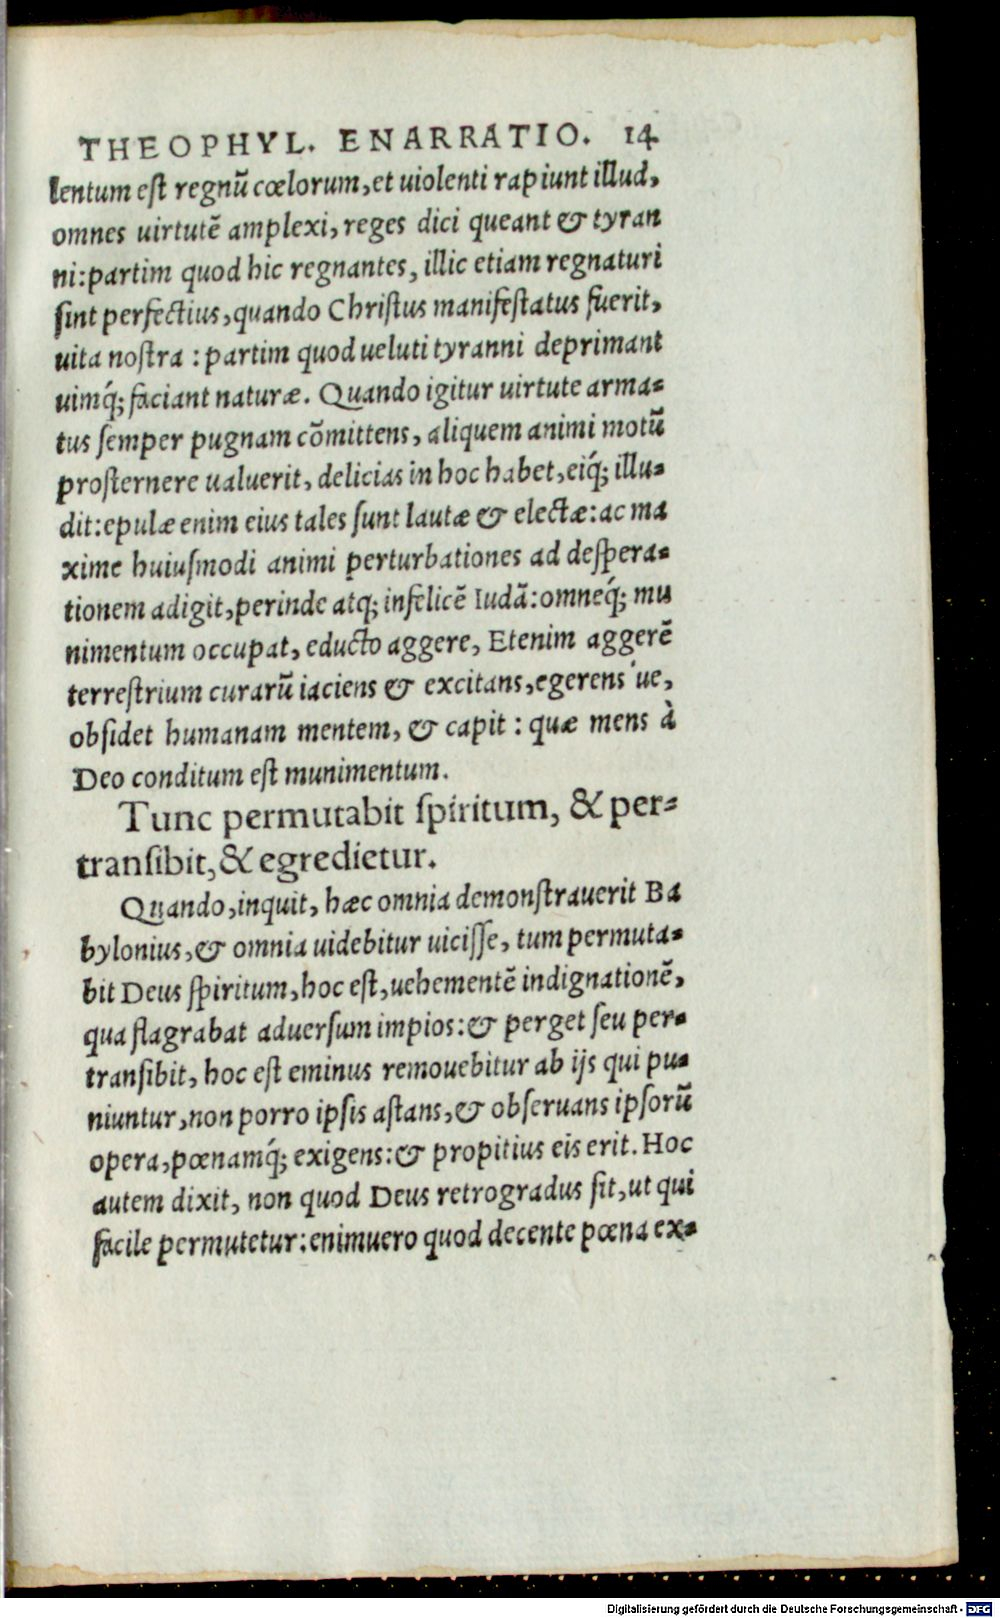 THEOPHYL. ENARRATIO. 14
lentum est regnũ cœlorum, et uiolenti rapiunt illud,
omnes uirtutẽ amplexi, reges dici queant & tyran
ni: partim quod hic regnantes, illic etiam regnaturi
sint perfectius, quando Christus manifestatus fuerit,
uita nostra : partim quod ueluti tyranni deprimant
uimq́; faciant naturæ. Quando igitur uirtute arma-
tus semper pugnam cõmittens, aliquem animi motũ
prosternere ualuerit, delicias in hoc habet, eiq́; illu-
dit: epulæ enim eius tales sunt lautæ & electæ: ac ma
xime huiusmodi animi perturbationes ad despera-
tionem adigit, perinde atq; infelicẽ Iudã: omneq́; mu
nimentum occupat, educto aggere, Etenim aggerẽ
terrestrium curarũ iaciens & excitans, egerens ue,
obsidet humanam mentem, & capit : quæ mens à
Deo conditum est munimentum.
Tunc permutabit spiritum, & per-
transibit, & egredietur.
Quando, inquit, hæc omnia demonstrauerit Ba
bylonius, & omnia uidebitur uicisse, tum permuta-
bit Deus spiritum, hoc est, uehementẽ indignationẽ,
qua flagrabat aduersum impios: & perget seu per-
transibit, hoc est eminus remouebitur ab ijs qui pu-
niuntur, non porro ipsis astans, & obseruans ipsorũ
opera, pœnamq́; exigens: & propitius eis erit. Hoc
autem dixit, non quod Deus retrogradus sit, ut qui
facile permutetur: enimuero quod decente pœna ex-
Digitalisierung gefördert durch die Deutsche Forschungsgemeinschaft - DFG